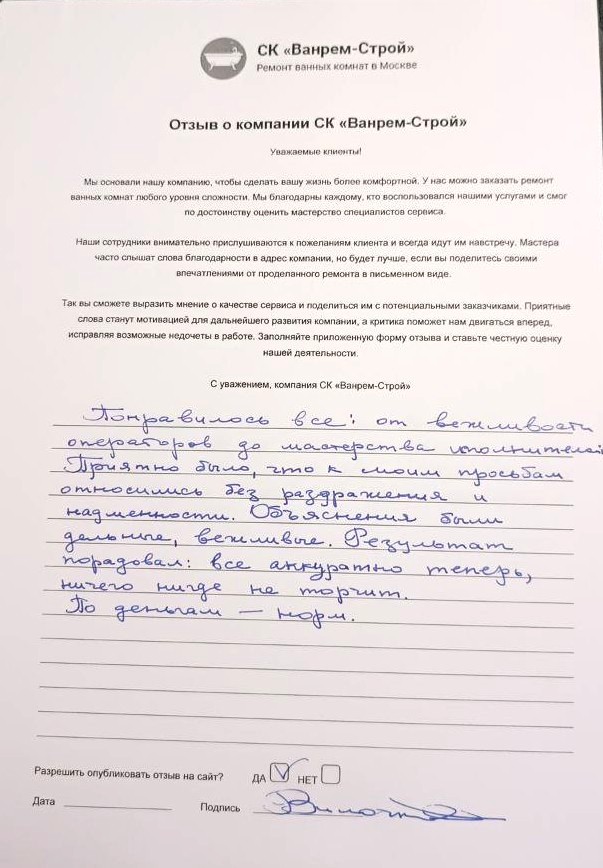 СК «Ванрем-Строй»
Ремонт ванных комнат в Москве
Отзыв о компании СК «Ванрем-Строй»
Уважаемые клиенты!
Мы основали нашу компанию, чтобы сделать вашу жизнь более комфортной. У нас можно заказать ремонт
ванных комнат любого уровня сложности. Мы благодарны каждому, кто воспользовался нашими услугами и смог
по достоинству оценить мастерство специалистов сервиса.
Наши сотрудники внимательно прислушиваются к пожеланиям клиента и всегда идут им навстречу. Мастера
часто слышат слова благодарности в адрес компании, но будет лучше, если вы поделитесь своими
впечатлениями от проделанного ремонта в письменном виде.
Так вы сможете выразить мнение о качестве сервиса и поделиться им с потенциальными заказчиками. Приятные
слова станут мотивацией для дальнейшего развития компании, а критика поможет нам двигаться вперед,
исправляя возможные недочеты в работе. Заполняйте приложенную форму отзыва и ставьте честную оценку
нашей деятельности.
С уважением, компания СК «Ванрем-Строй»
Понравилось все: от вежливости
операторов до мастерства исполнителей
Приятно было, что к моим просьбам
относились без раздражения и
надменности. Объяснения были
дельные, вежливые. Результат
порадовал: все аккуратно теперь,
ничего нигде не торчит.
По деньгам — норм.
Разрешить опубликовать отзыв на сайт? ДА НЕТ
Дата Подпись